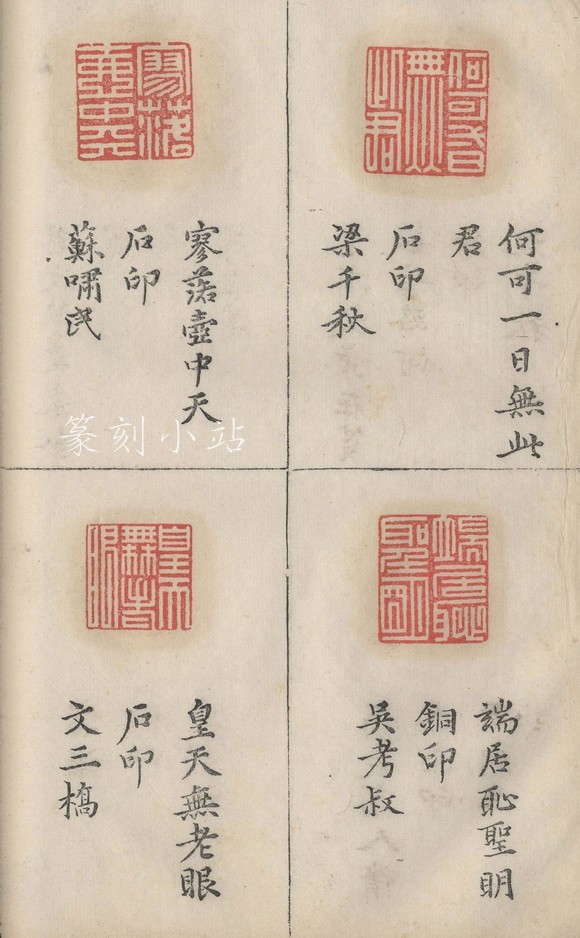 何可一日無此
君
石印
梁千秋
寥落壺中天
石印
蘇嘯民
端居恥聖明
銅印
吳考叔
皇天無老眼
石印
文三橋
篆刻小站